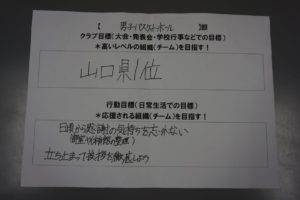 【 男子バスケットボール 】部
クラブ目標(大会・発表会・学校行事などでの目標)
＊高いレベルの組織(チーム)を目指す！
山口県1位
行動目標(日常生活での目標)
＊応援される組織(チーム)を目指す！
日頃から感謝の気持ちを忘れない
立ち止まって挨拶を徹底しよう